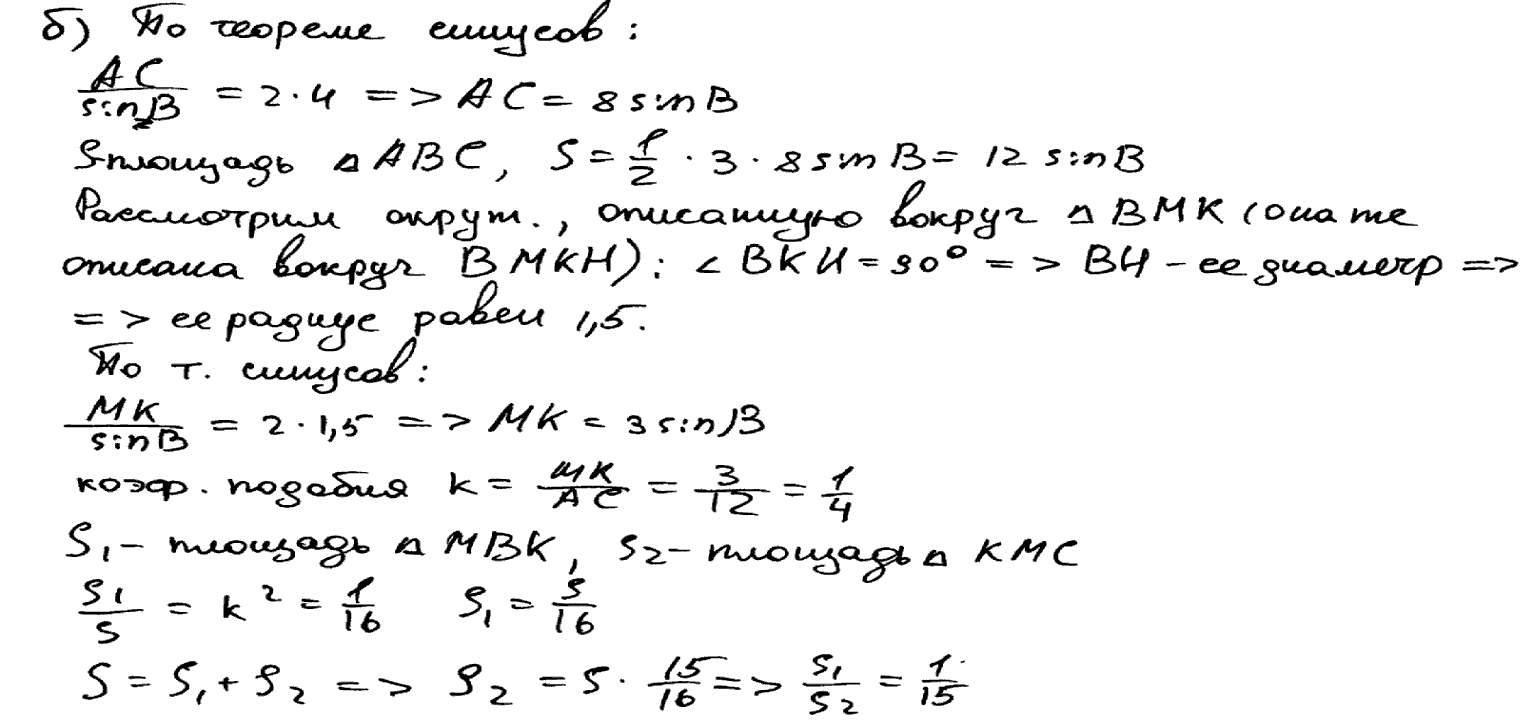 б) По теореме синусов:
AC/sinB = 2·4 => AC = 8 sinB
S-площадь △ABC, S = 1/2 · 3 · 8 sin B = 12 sinB
Рассмотрим окруж., описанную вокруг △BMK (она же
описана вокруг BMKH): ∠BKH = 90° => BH - ее диаметр =>
=> ее радиус равен 1,5.
По т. синусов:
MK/sinB = 2·1,5 => MK = 3 sinB
коэф. подобия k = MK/AC = 3/12 = 1/4
S₁ - площадь △MBK, S₂ - площадь △KMC
S₁/S = k² = 1/16 S₁ = S/16
S = S₁ + S₂ => S₂ = S · 15/16 => S₁/S₂ = 1/15